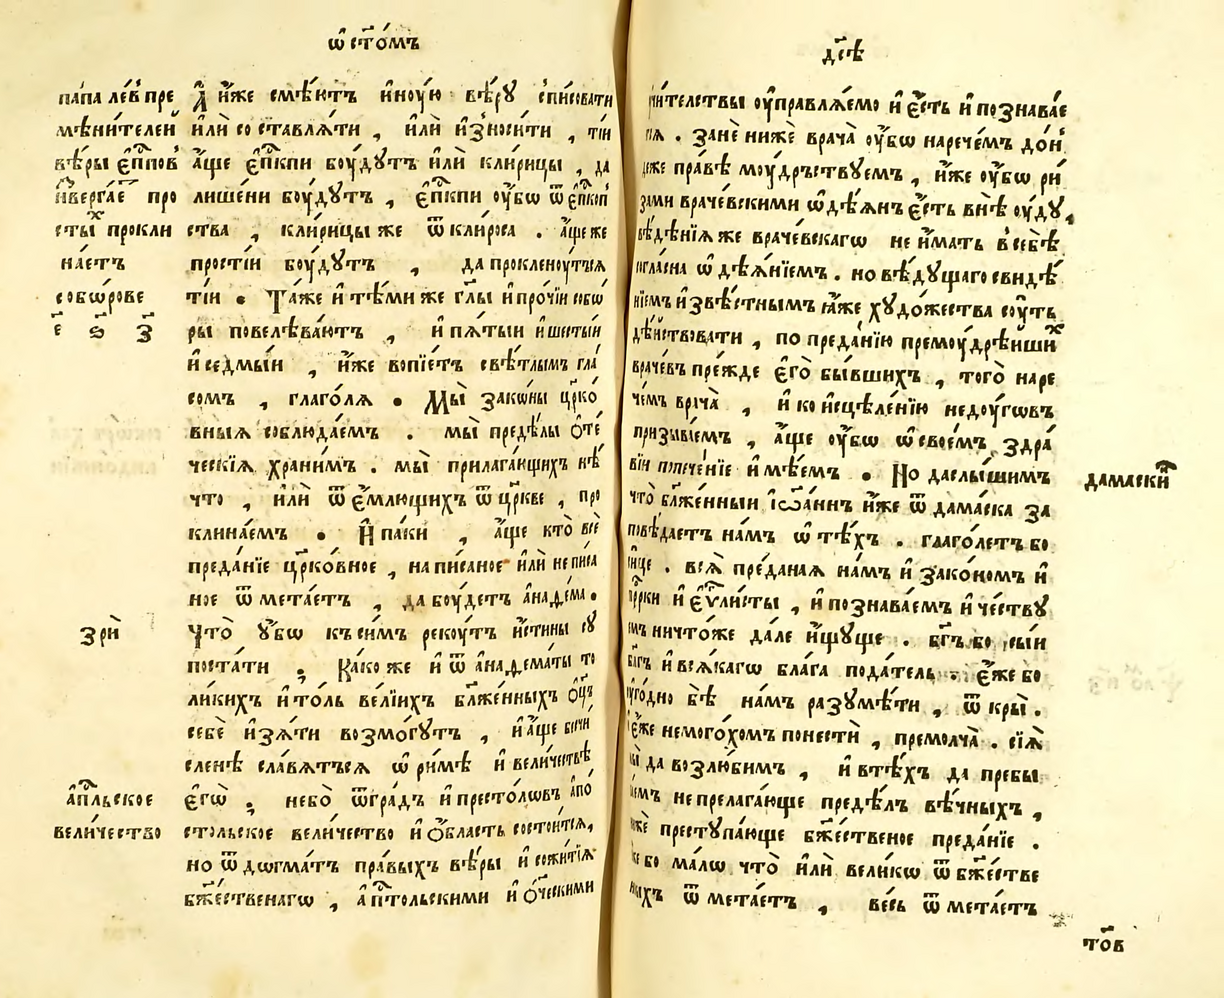 ѡ҆ ст҃о́мъ
папа ле́в пре
мѣни́телей
вѣ́ры є҆п҃пов
и҆зверга́е про
сты́х прокли
на́етъ
собѡ́рове
є҃ ѕ҃ з҃
А҆ и҆́же смѣ́ютъ и҆ноу́ю вѣ́рꙋ спи́совати
и҆лѝ составлѧ́ти , и҆лѝ и҆зноси́ти , ті́и
а҆́ще є҆п҃кпи боу́дутъ и҆лѝ кли́рицы , да
лише́ни боу́дутъ , є҆п҃кпи ᲂу҆́бѡ ѿ є҆п҃коп
ства , кли́рицы же ѿ кли́роса . а҆́ще же
прості́и боу́дутъ , да прокленоу́тсѧ
ті́и . Та́же и҆ тѣ́ми же гл҃ы и҆ про́чїи собѡ́
ры повелѣва́ютъ , и҆ пѧ́тыи и҆ шесты́и
и҆ седмы́и , и҆́же вопїе́тъ свѣ́тлымъ гла́
сомъ , глаго́лѧ . Мы̀ зако́ны цр҃ко́
вныѧ соблюда́емъ . мы̀ предѣ́лы ѻ҆те́
ческїѧ храни́мъ . мы̀ прилага́ющихъ нѣ́
что , и҆лѝ ѿе́млющихъ ѿ цр҃кве , про
клина́емъ . И҆ па́ки , а҆́ще кто̀ всѐ
преда́нїе цр҃ко́вное , написаное и҆лѝ неписа
ное ѿмета́етъ , да боу́детъ а҆на́ѳема .
зрѝ
Что̀ ᲂу҆́бѡ къ си́мъ рекоу́тъ и҆́стины сꙋ
поста́ти ; Ка́ко же и҆ ѿ а҆на́ѳематы то
ли́кихъ и҆ то́ль вели́ихъ бл҃же́нныхъ ѻ҆ц҃ъ
себѐ и҆з̾ѧ́ти возмо́гутъ , и҆ а҆́ще бесчи
сленѣ сла́вѧтъсѧ ѡ҆ ри́мѣ и҆ вели́чествѣ
є҆гѡ̀ ; не бо̀ ѿ гра́дъ и҆ престо́лѡвъ а҆по́
а҆п҃льское
вели́чество
стольское вели́чество и҆ ѻ҆́бласть состои́тсѧ,
но ѿ дѡгма́тъ пра́выхъ вѣ́ры и҆ сожи́тїѧ
бж҃е́ственагѡ , а҆п҃тольскими и҆ ѻ҆ч҃ескими
дс҃іѣ
чи́телствы ᲂу҆правлѧ́емо и҆ є҆́сть и҆ познава́е
сѧ . занѐ нижѐ врача̀ ᲂу҆́бѡ нарече́мъ до́н
деже пра́вѣ моу́дръствꙋемъ , и҆́же ᲂу҆́бѡ ри́
зами враче́вскими ѡ҆дѣ́ѧнъ є҆́сть внѣ̀ ᲂу҆́дꙋ,
вѣ́дѣнїѧ же враче́вскагѡ не и҆́мать в себѣ̀
согла́сна ѡ҆дѣѧ́нїемъ . но вѣ́дꙋщаго свидѣ́
нїемъ и҆звѣ́стнымъ ꙗ҆́же хꙋдо́жества соу́ть
дѣ́йствовати , по преда́нїю премоу́дрѣиших
враче́въ пре́жде є҆го̀ бы́вшихъ , того̀ наре
че́мъ врача̀ , и҆ ко и҆сцѣле́нїю недоу́гѡвъ
призыва́емъ , а҆́ще ᲂу҆́бѡ ѡ҆ свое́мъ здра́
вїи попече́нїе и҆мѣ́емъ . Но да слы́шимъ
дамаски́н
что̀ бл҃же́нныи і҆ѡа́ннъ и҆́же ѿ дама́ска за
повѣ́даетъ на́мъ ѡ҆ тѣ́хъ . глаго́летъ бо
си́це . всѧ̀ пре́данаѧ на́мъ и҆ зако́номъ и҆
прⷪ҇рки и҆ є҆ѵⷢ҇листы , и҆ познава́емъ и҆ че́ствꙋ
емъ ничто́же да́ле и҆́щꙋще . бг҃ъ бо сы́и
бл҃гъ и҆ всѧ́кагѡ бла́га пода́тель . є҆́же бо
ᲂу҆го́дно бѣ̀ на́мъ разꙋмѣ́ти , ѿкры̀ .
є҆́же немого́хомъ понестѝ , премолча̀ . сїѧ̀
мы̀ да возлю́бимъ , и҆ в тѣ́хъ да пребы
ва́емъ не прелага́юще предѣ́лъ вѣ́чныхъ ,
нижѐ престꙋпа́юще бж҃е́ственое преда́нїе .
и҆́же бо ма́лѡ что̀ и҆лѝ вели́кѡ ѿ бж҃е́стве
нныхъ ѿмета́етъ , ве́сь ѿмета́етъ
то́в